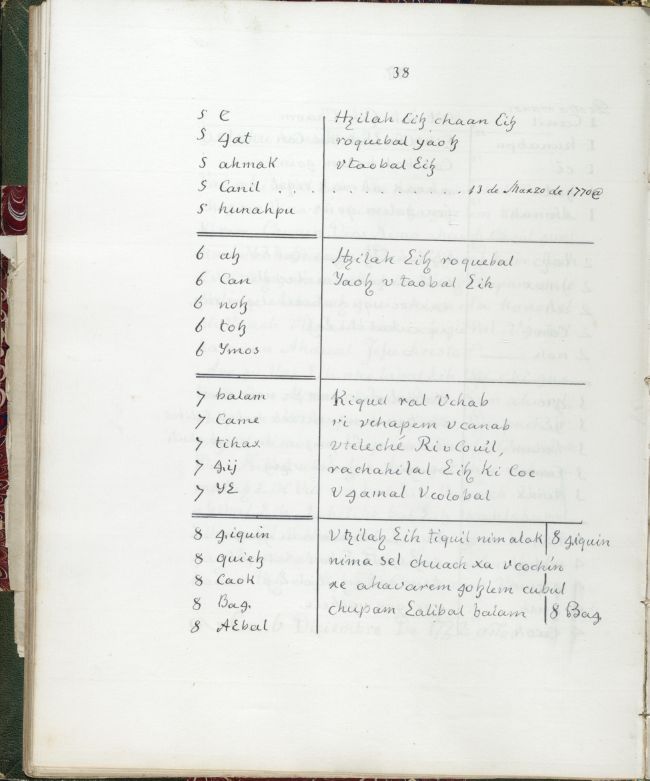 38
5 E Hꜩilah Ɛih chaan Ɛih
5 ꜭat roquebal yaoh
5 ahmak vtaobal Ɛih
5 Canil . . . . . . . . . . . 13 de Marzo de 1770@
5 hunahpu
6 ah Hꜩilah Ɛih roquebal
6 Can Yaoh v taobal Ɛih
6 noh
6 toh
6 Ymos
7 balam Kiquel ral Vchab
7 Came ri vchapem vcanab
7 tihax vteleché Ri v Couil,
7 ꜭij rachahilal Ɛih Ki Coc
7 YƐ vꜭamal Vcolobal
8 ꜭiquin Vꜩilah Ɛih tiquil nimalak 8 ꜭiquin
8 quieh nima sel chuach xu vcochin
8 Caok xe ahavarem ꜭohlem cubul
8 Baꜭ. chupam Ɛalibal balam 8 Baꜭ
8 AƐbal